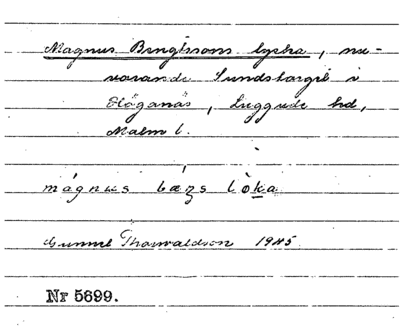 Magnus Bengtsons lycka, nu-
varande Sundstorget i
Höganäs, Luggude hd,
Malm l.
mágnus bæŋs lo̱ka
Gunnel Thorwaldson 1945.
Nr 5699.